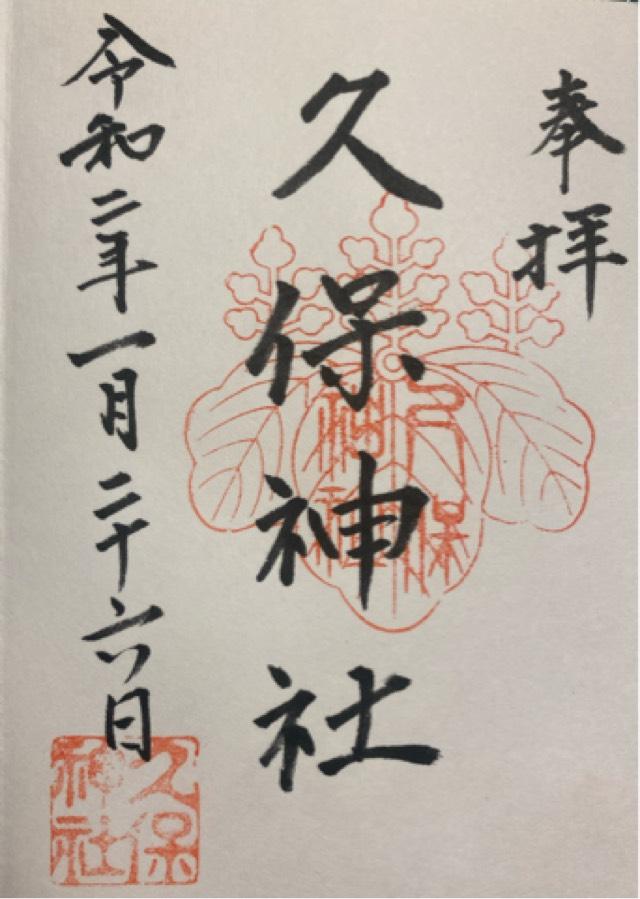 奉拝
久保神社
久保神社
令和二年一月二十六日
久保神社